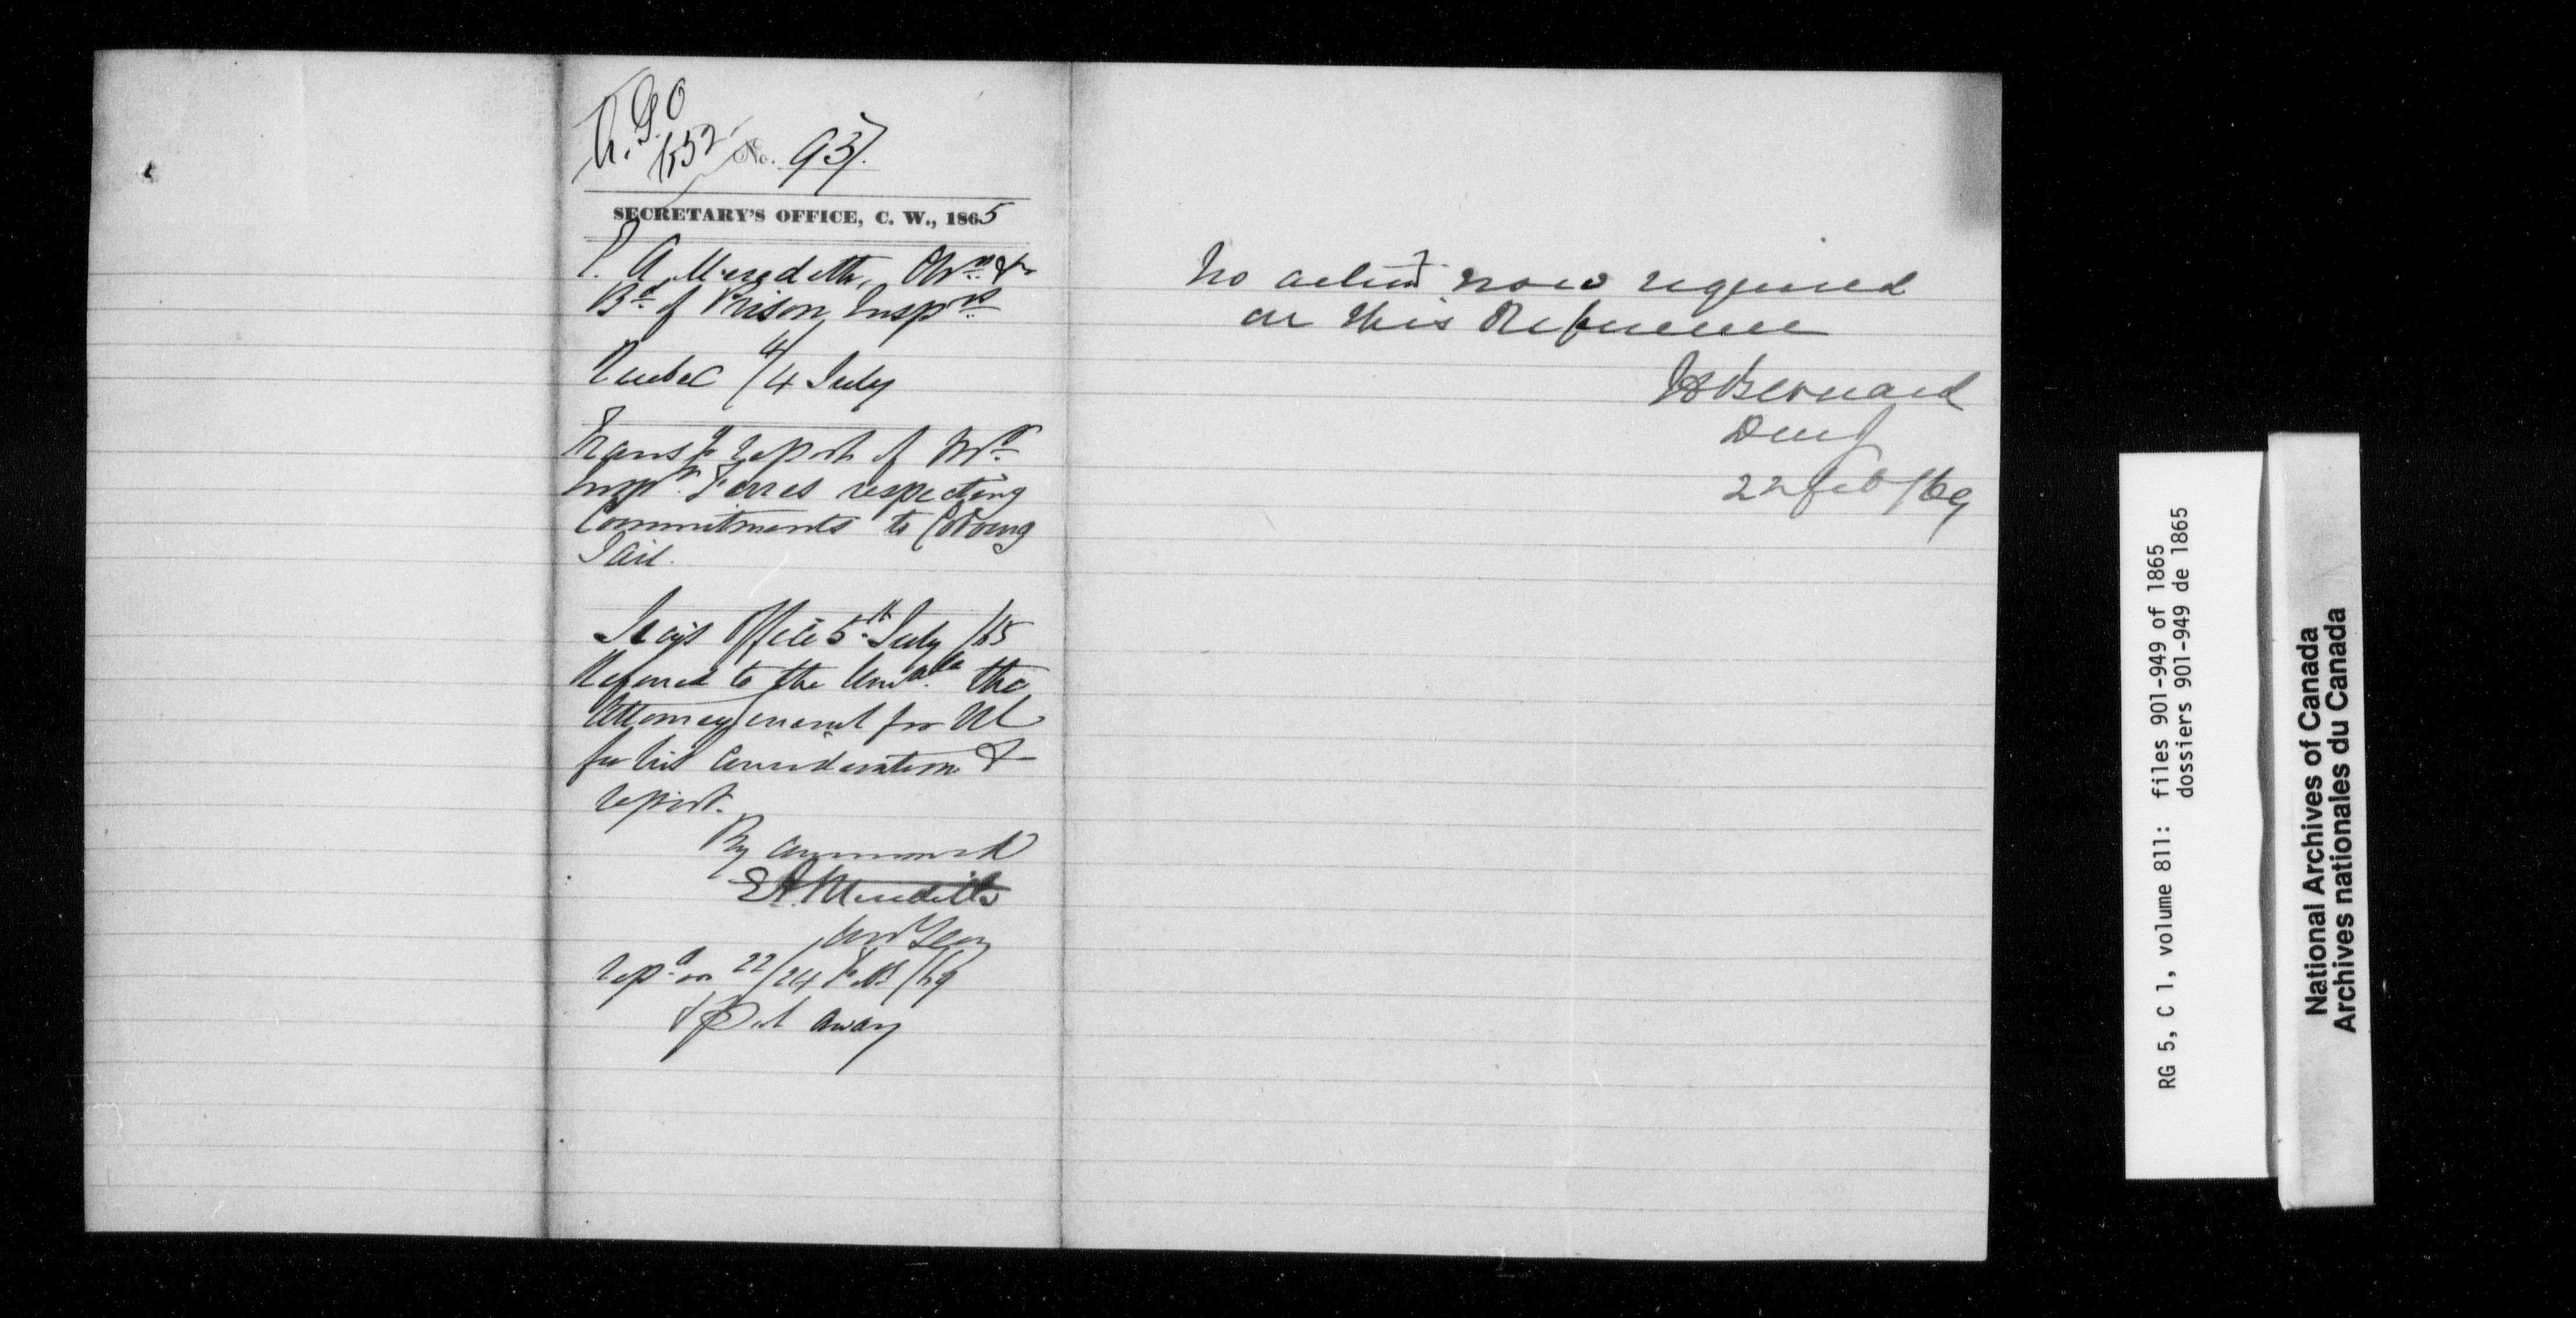 A.G.O
1552
No. 937.
SECRETARY'S OFFICE, C. W., 1865
E. A. Meredith, Chrn &c
Bd of Prison Insprs
Quebec 4/4 July
Transg report of Mr
Inspr Ferres respecting
Commitments to Cobourg
Jail.
Secy's Office 5th July /65
Referred to the Honble the
Attorney General for UC
for his Consideration &
report.
By Command
E A. Meredith
Asst Secy
repd on 22/24 Feb /69
& Put away
No action now required
on this Reference
H Bernard
22 Feb /69
RG 5, C 1, volume 811: files 901-949 of 1865
dossiers 901-949 de 1865
National Archives of Canada
Archives nationales du Canada